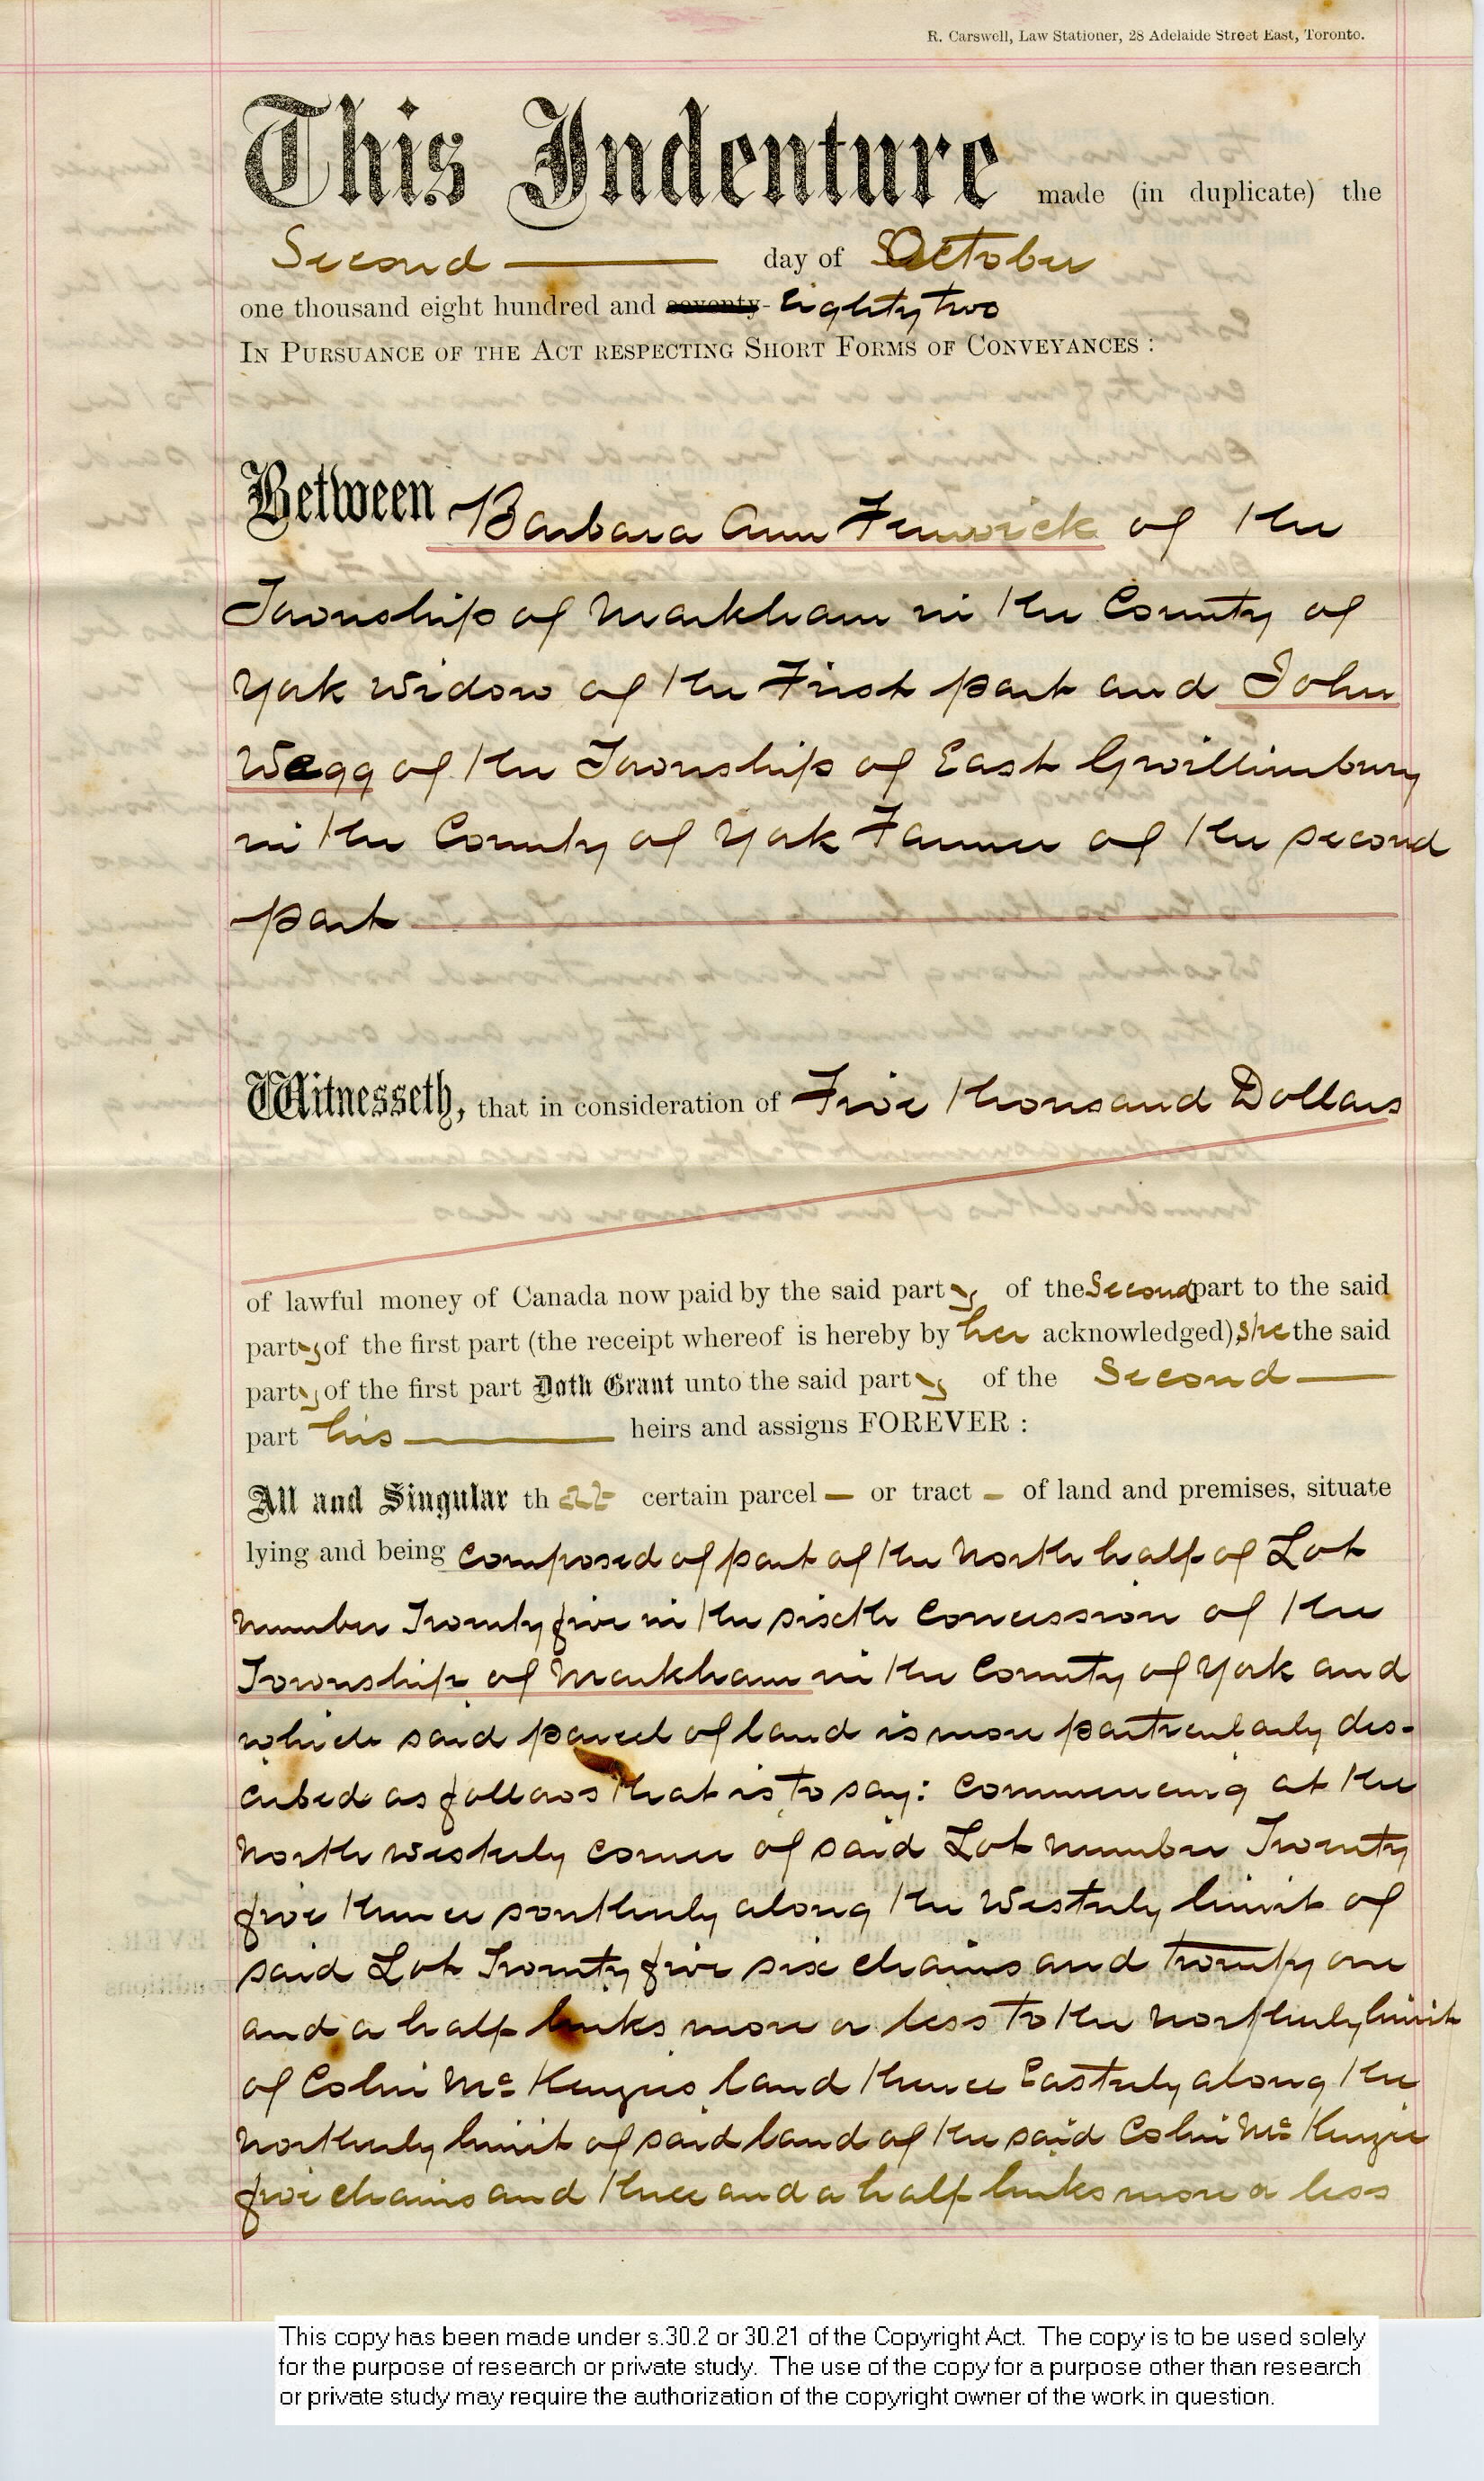 R. Carswell, Law Stationer, 28 Adelaide Street East, Toronto.
This Indenture made (in duplicate) the
Second day of October
one thousand eight hundred and seventy- Eighty two
IN PURSUANCE OF THE ACT RESPECTING SHORT FORMS OF CONVEYANCES :
Between Barbara Ann Fenwick of the
Township of Markham in the County of
York Widow of the First part and John
Wegg of the Township of East Gwillimbury
in the County of York Farmer of the second
part
Witnesseth, that in consideration of Five thousand Dollars
of lawful money of Canada now paid by the said party of the Second part to the said
party of the first part (the receipt whereof is hereby by her acknowledged), she the said
party of the first part Doth Grant unto the said party of the Second
part his heirs and assigns FOREVER :
All and Singular that certain parcel — or tract — of land and premises, situate
lying and being composed of part of the North half of Lot
number Twenty five in the sixth Concession of the
Township of Markham in the County of York and
which said parcel of land is more particularly des-
cribed as follows that is to say: Commencing at the
North westerly corner of said Lot number Twenty
five thence southerly along the Westerly limit of
said Lot Twenty five six chains and twenty one
and a half links more or less to the northerly limit
of Colin Mc Kenzies land thence Easterly along the
Northerly limit of said land of the said Colin Mc Kenzie
five chains and three and a half links more or less
This copy has been made under s.30.2 or 30.21 of the Copyright Act. The copy is to be used solely
for the purpose of research or private study. The use of the copy for a purpose other than research
or private study may require the authorization of the copyright owner of the work in question.